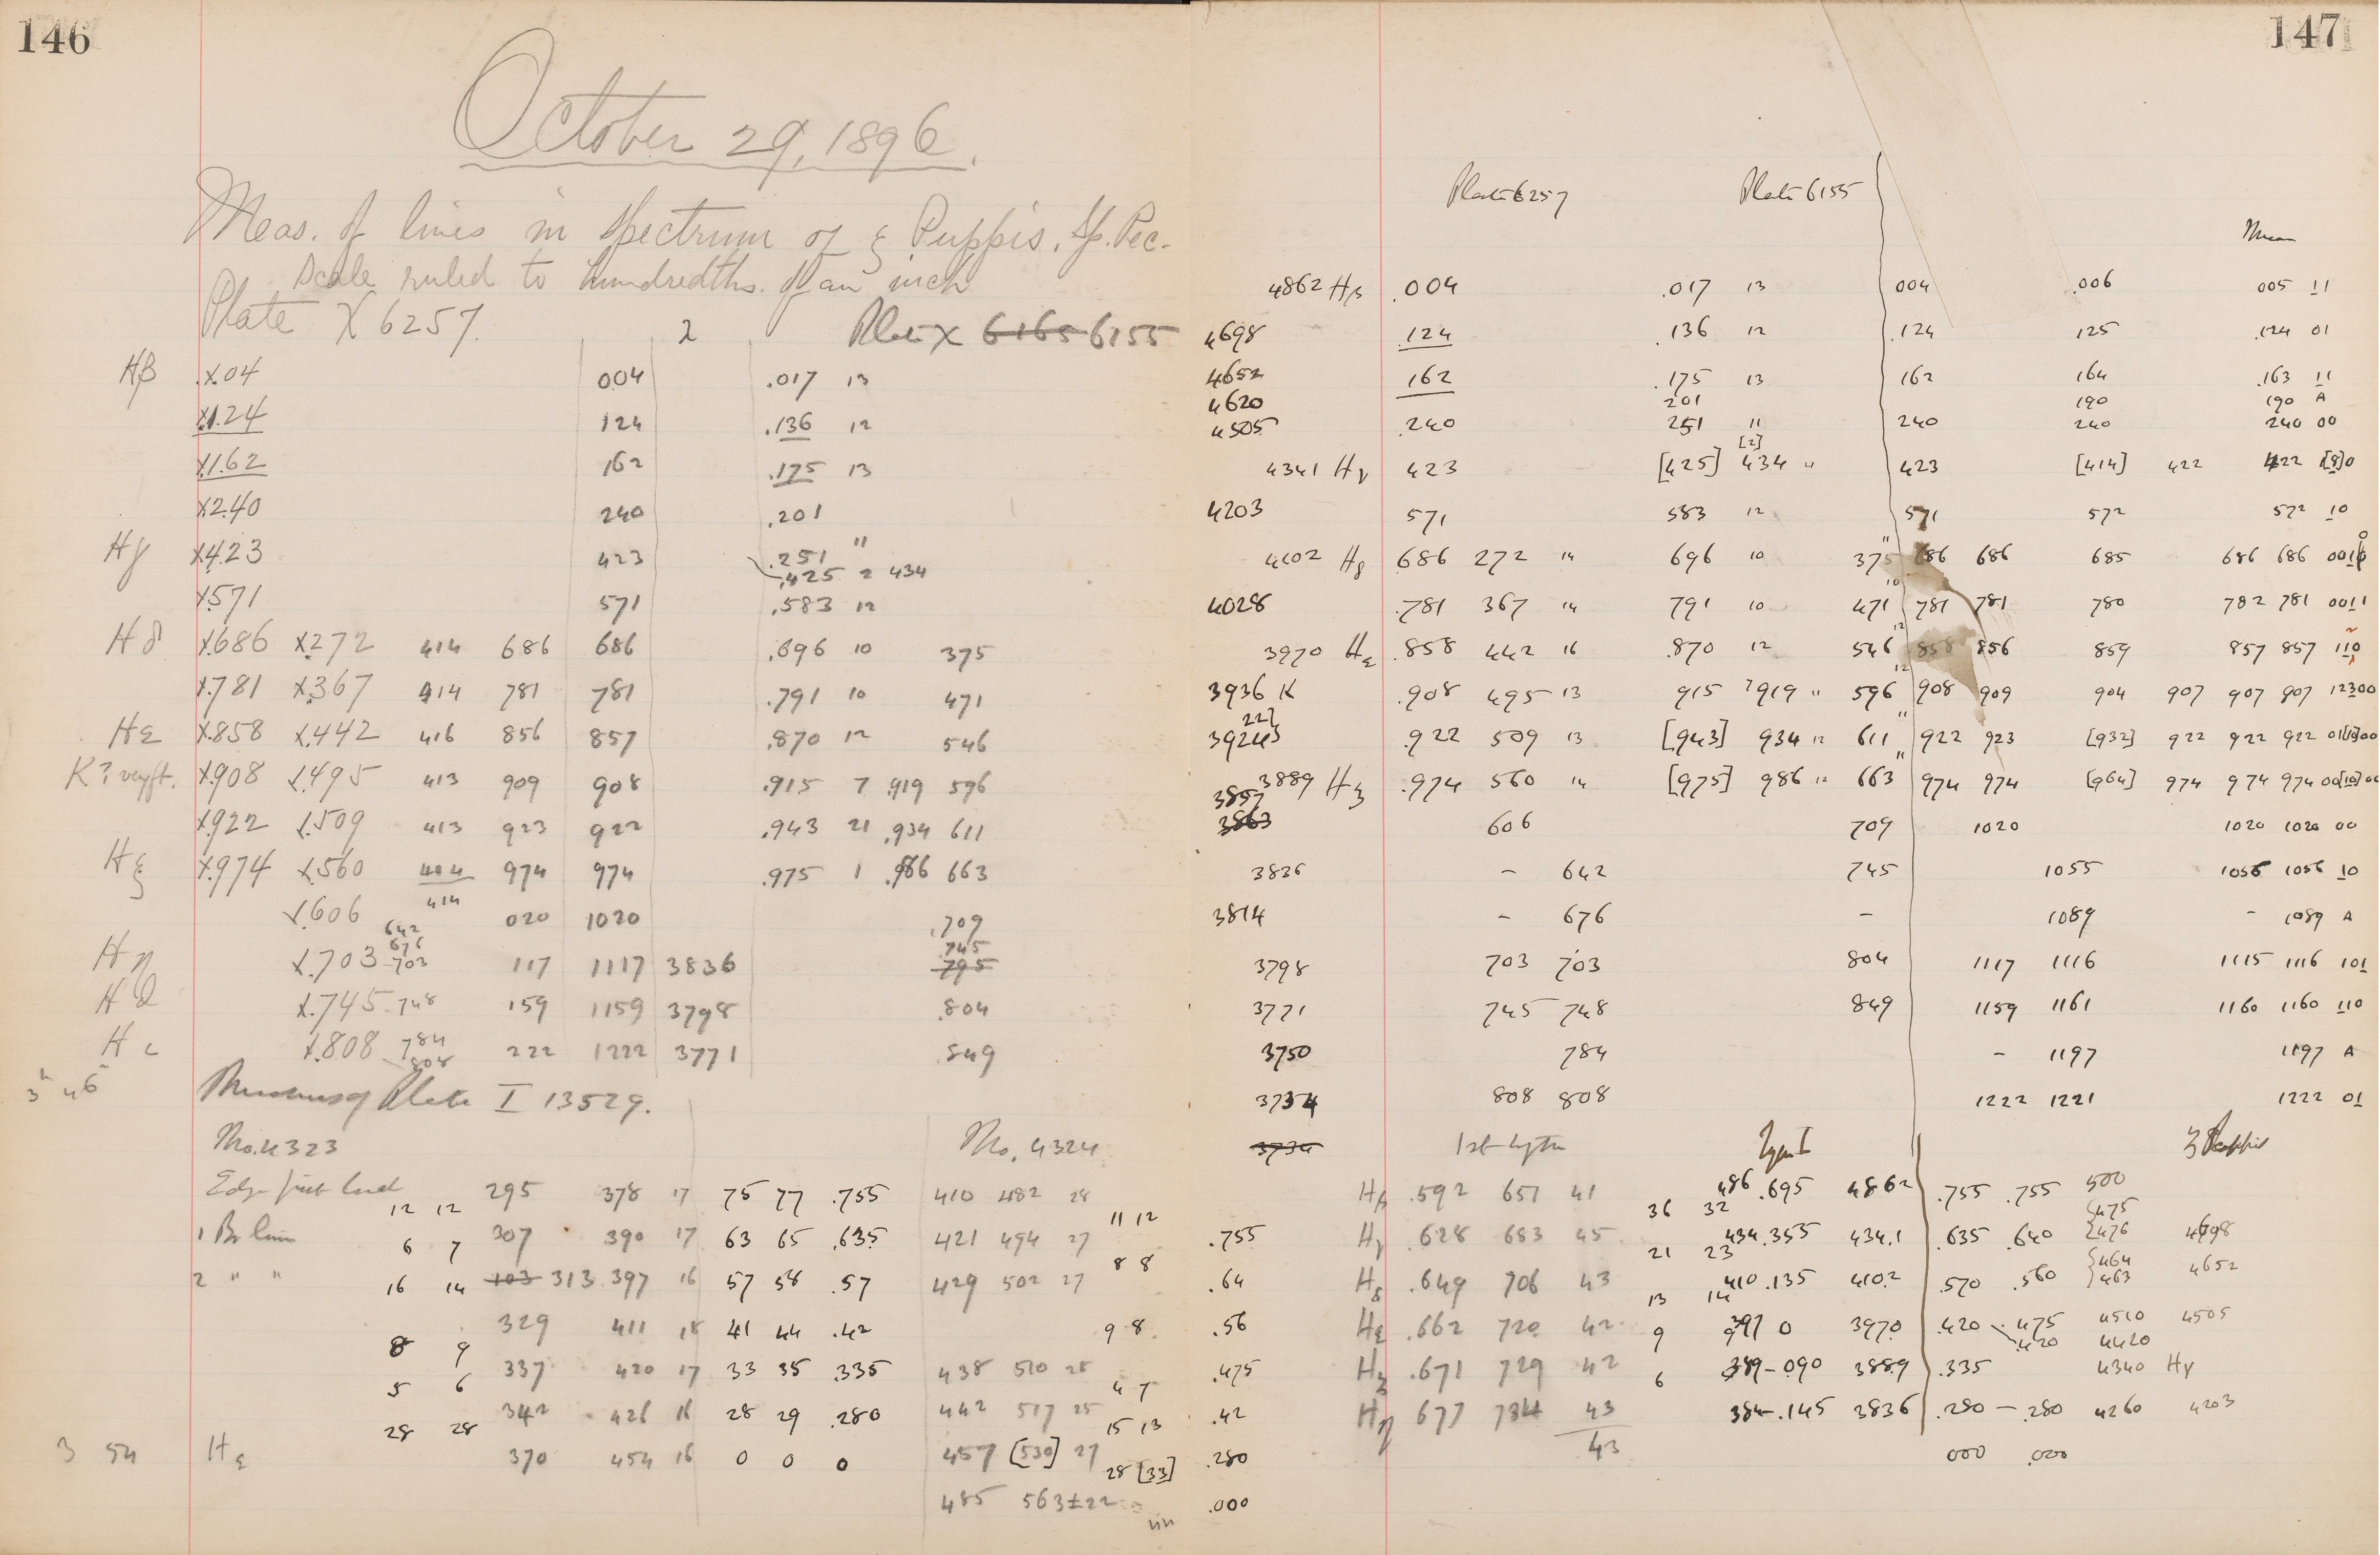 146
October 29, 1896.
Meas. of lines in Spectrum of ξ Puppis. Sp. Pec.
Scale ruled to hundredths of an inch
Plate X 6257. 2 Plate X 6165 6155
Hβ X.04 004 .017 13
X.124 124 .136 12
X.162 162 .175 13
X.240 240 .201
Hγ X.423 423 .251 11
.425 2 434
X.571 571 .583 12
Hδ X.686 X.272 414 686 686 .696 10 375
X.781 X.367 414 781 781 .791 10 471
Hε X.858 X.442 416 856 857 .870 12 546
K? X.908 X.495 413 909 908 .915 7 .919 596
X.922 X.509 413 923 922 .943 21 .934 611
Hζ X.974 X.560 414 974 974 .975 1 .986 663
414
X.606 020 1020 .709
642
676 745
Hη X.703 703 117 1117 3836 795
Hθ X.745 748 159 1159 3798 .804
Hι X.808 784 222 1222 3771 .849
808
3h 46 Measures of Plate I 13529.
No. 4323 No. 4324
Edge first line 295 378 17 75 77 .755 410 482 28
12 12 11 12
1 Br line 307 390 17 63 65 .635 421 494 27
6 7 8 8
2 " " 103 313 397 16 57 58 .57 429 502 27
16 14
329 411 18 41 44 .42 9 8
8 9
337 420 17 33 35 .335 438 510 28
5 6 4 7
342 426 16 28 29 .280 442 517 25
28 28 15 13
3 54 Hε 370 454 16 0 0 0 457 [530] 27
28 [33]
485 563±22
147
Plate 6257 Plate 6155
Mean
4862 Hβ .004 .017 13 004 .006 005 11
4698 .124 .136 12 .124 125 .124 01
4652 162 .175 13 162 164 .163 11
4620 201 190 190 A
4505 .240 251 11 240 240 240 00
[2]
4341 Hγ 423 [425] 434 " 423 [414] 422 422 [8]0
4203 571 583 12 571 572 572 10
4102 Hδ 686 272 14 696 10 375 686 686 685 686 686 0010
4028 .781 367 14 791 10 471 781 781 780 782 781 0011
3970 Hε .858 442 16 .870 12 546 858 856 859 857 857 110
3936 K .908 495 13 915 7919 " 596 908 909 904 907 907 907 12300
22}
39245 .922 509 13 [943] 934 12 611 922 923 [932] 922 922 922
3889 Hζ .974 560 14 [975] 986 12 663 974 974 [964] 974 974 974
3857
3863 606 709 1020 1020 1020 00
3836 – 642 745 1055 1056 1056 10
3814 – 676 – 1089 - 1089 A
3798 703 703 804 1117 1116 1115 1116 101
3771 745 748 849 1159 1161 1160 1160 110
3750 784 – 1197 1197 A
3734 808 808 1222 1221 1222 01
3734 Type I ζ Puppis
Hβ .592 651 41 486 .695 4862 .755 .755 500
36 32 {475
.755 Hγ .628 683 45 434.355 434.1 .635 .640 476 4698
21 23 {464
.64 Hδ .649 706 43 410.135 410.2 .570 .560 463 4652
13 14
.56 Hε .662 720 42 397 0 3970 .420 .475 4510 4505
9 9 .420 4420
.475 Hζ .671 729 42 389-.090 3889 .335 4340 Hγ
6
.42 Hη 677 734 43 384-.145 3836 .280 – .280 4260 4203
43
.280 000 .000
.000